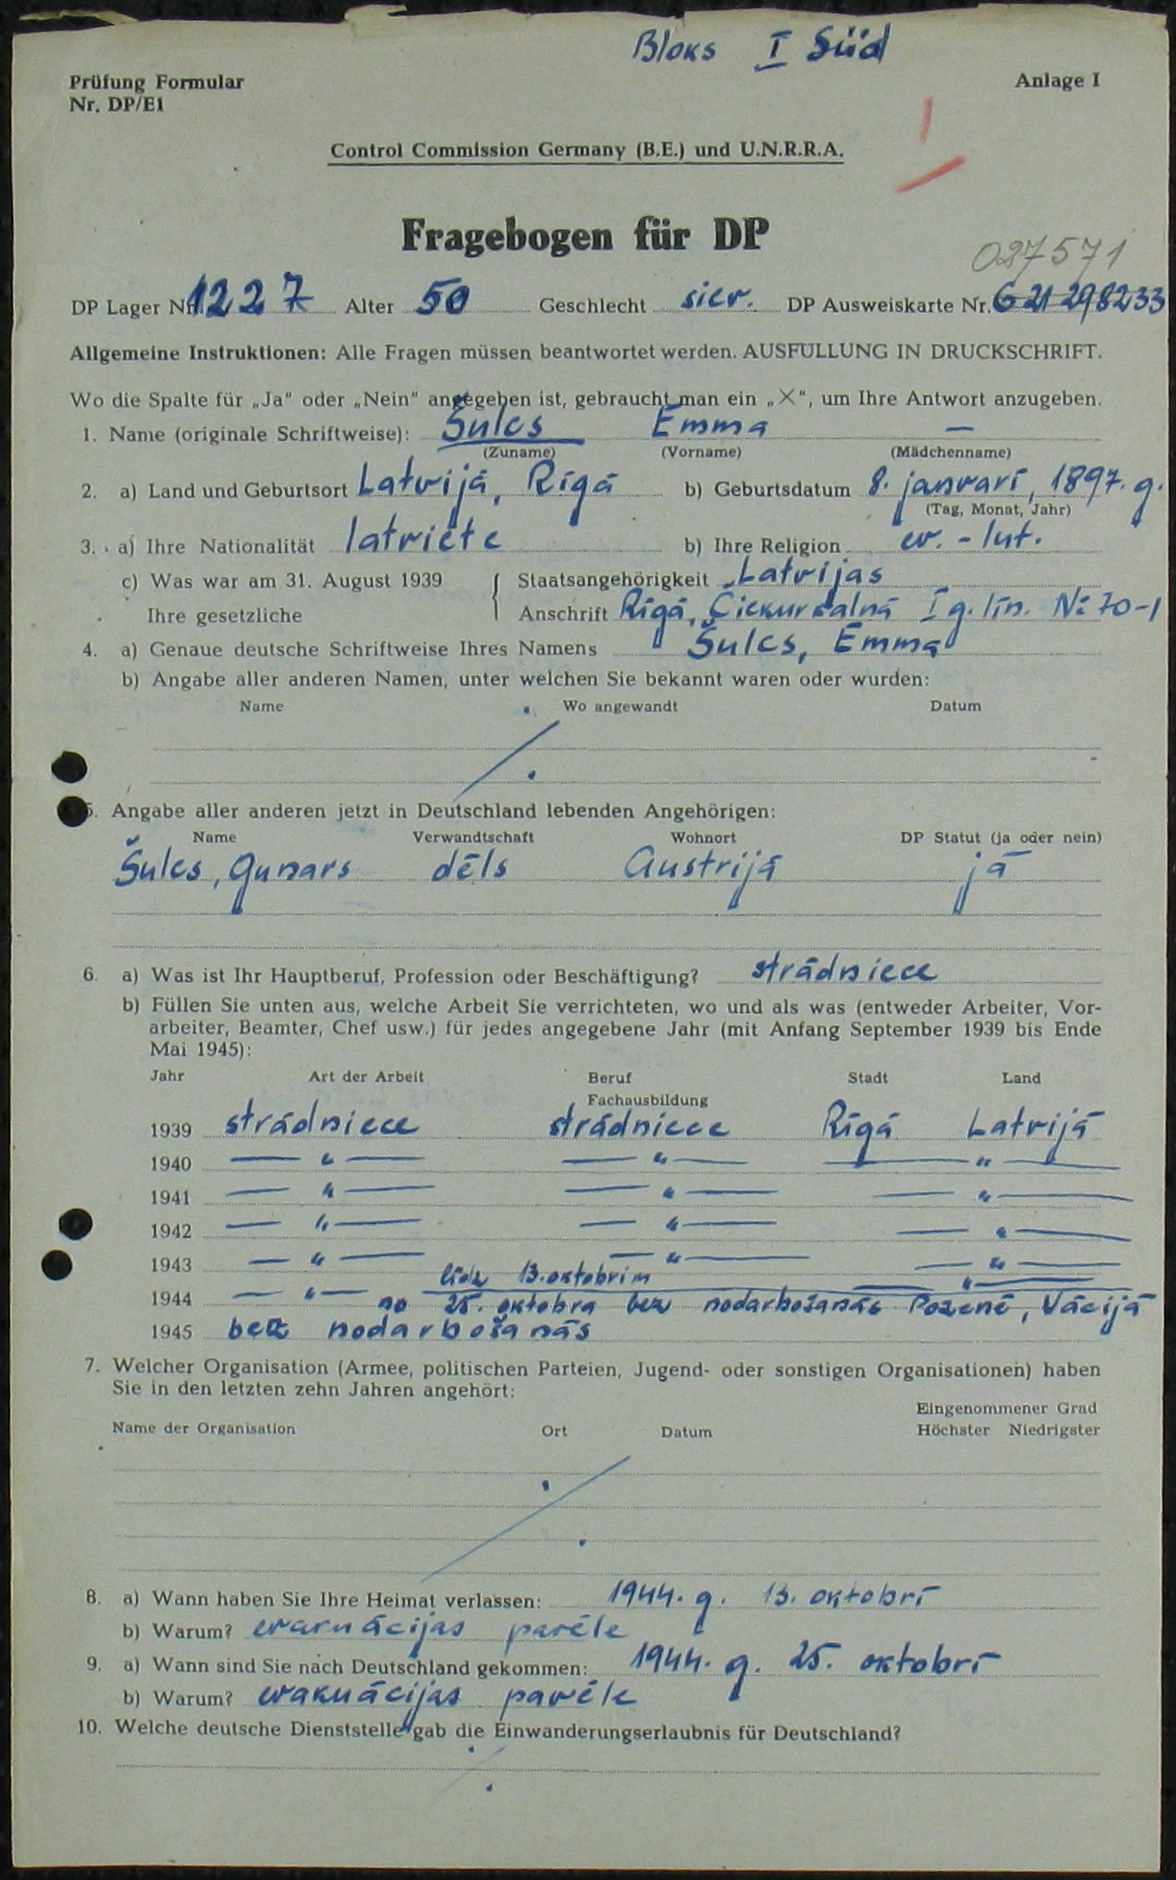 Bloks I Süd
Prüfung Formular Anlage I
Nr. DP/E1
Control Commission Germany (B.E.) und U.N.R.R.A.
Fragebogen für DP
087571
DP Lager Nr. 1227 Alter 50 Geschlecht siev. DP Ausweiskarte Nr. G 21 298233
Allgemeine Instruktionen: Alle Fragen müssen beantwortet werden. AUSFÜLLUNG IN DRUCKSCHRIFT.
Wo die Spalte für „Ja“ oder „Nein“ angegeben ist, gebraucht man ein „×“, um Ihre Antwort anzugeben.
1. Name (originale Schriftweise): Šulcs Emma —
(Zuname) (Vorname) (Mädchenname)
2. a) Land und Geburtsort Latvijā, Rīgā b) Geburtsdatum 8. janvarī, 1897. g.
(Tag, Monat, Jahr)
3. a) Ihre Nationalität latviete b) Ihre Religion ev. - lut.
c) Was war am 31. August 1939 { Staatsangehörigkeit Latvijas
Ihre gesetzliche Anschrift Rīgā, Čiekurkalnā I g. līn. № 70-1
4. a) Genaue deutsche Schriftweise Ihres Namens Šulcs, Emma
b) Angabe aller anderen Namen, unter welchen Sie bekannt waren oder wurden:
Name Wo angewandt Datum
5. Angabe aller anderen jetzt in Deutschland lebenden Angehörigen:
Name Verwandtschaft Wohnort DP Statut (ja oder nein)
Šulcs, Gunars dēls Austrijā jā
6. a) Was ist Ihr Hauptberuf, Profession oder Beschäftigung? strādniece
b) Füllen Sie unten aus, welche Arbeit Sie verrichteten, wo und als was (entweder Arbeiter, Vor-
arbeiter, Beamter, Chef usw.) für jedes angegebene Jahr (mit Anfang September 1939 bis Ende
Mai 1945):
Jahr Art der Arbeit Beruf Stadt Land
Fachausbildung
1939 strādniece strādniece Rīgā Latvijā
1940 — " — — " — — " —
1941 — " — — " — — " —
1942 — " — — " — — " —
1943 — " — — " — — " —
līdz 13. oktobrim — " —
1944 — " — no 25. oktobra bez nodarbošanās Pozenē, Vācijā
1945 bez nodarbošanās
7. Welcher Organisation (Armee, politischen Parteien, Jugend- oder sonstigen Organisationen) haben
Sie in den letzten zehn Jahren angehört:
Eingenommener Grad
Name der Organisation Ort Datum Höchster Niedrigster
8. a) Wann haben Sie Ihre Heimat verlassen: 1944. g. 13. oktobrī
b) Warum? evakuācijas pavēle
9. a) Wann sind Sie nach Deutschland gekommen: 1944. g. 25. oktobrī
b) Warum? evakuācijas pavēle
10. Welche deutsche Dienststelle gab die Einwanderungserlaubnis für Deutschland?